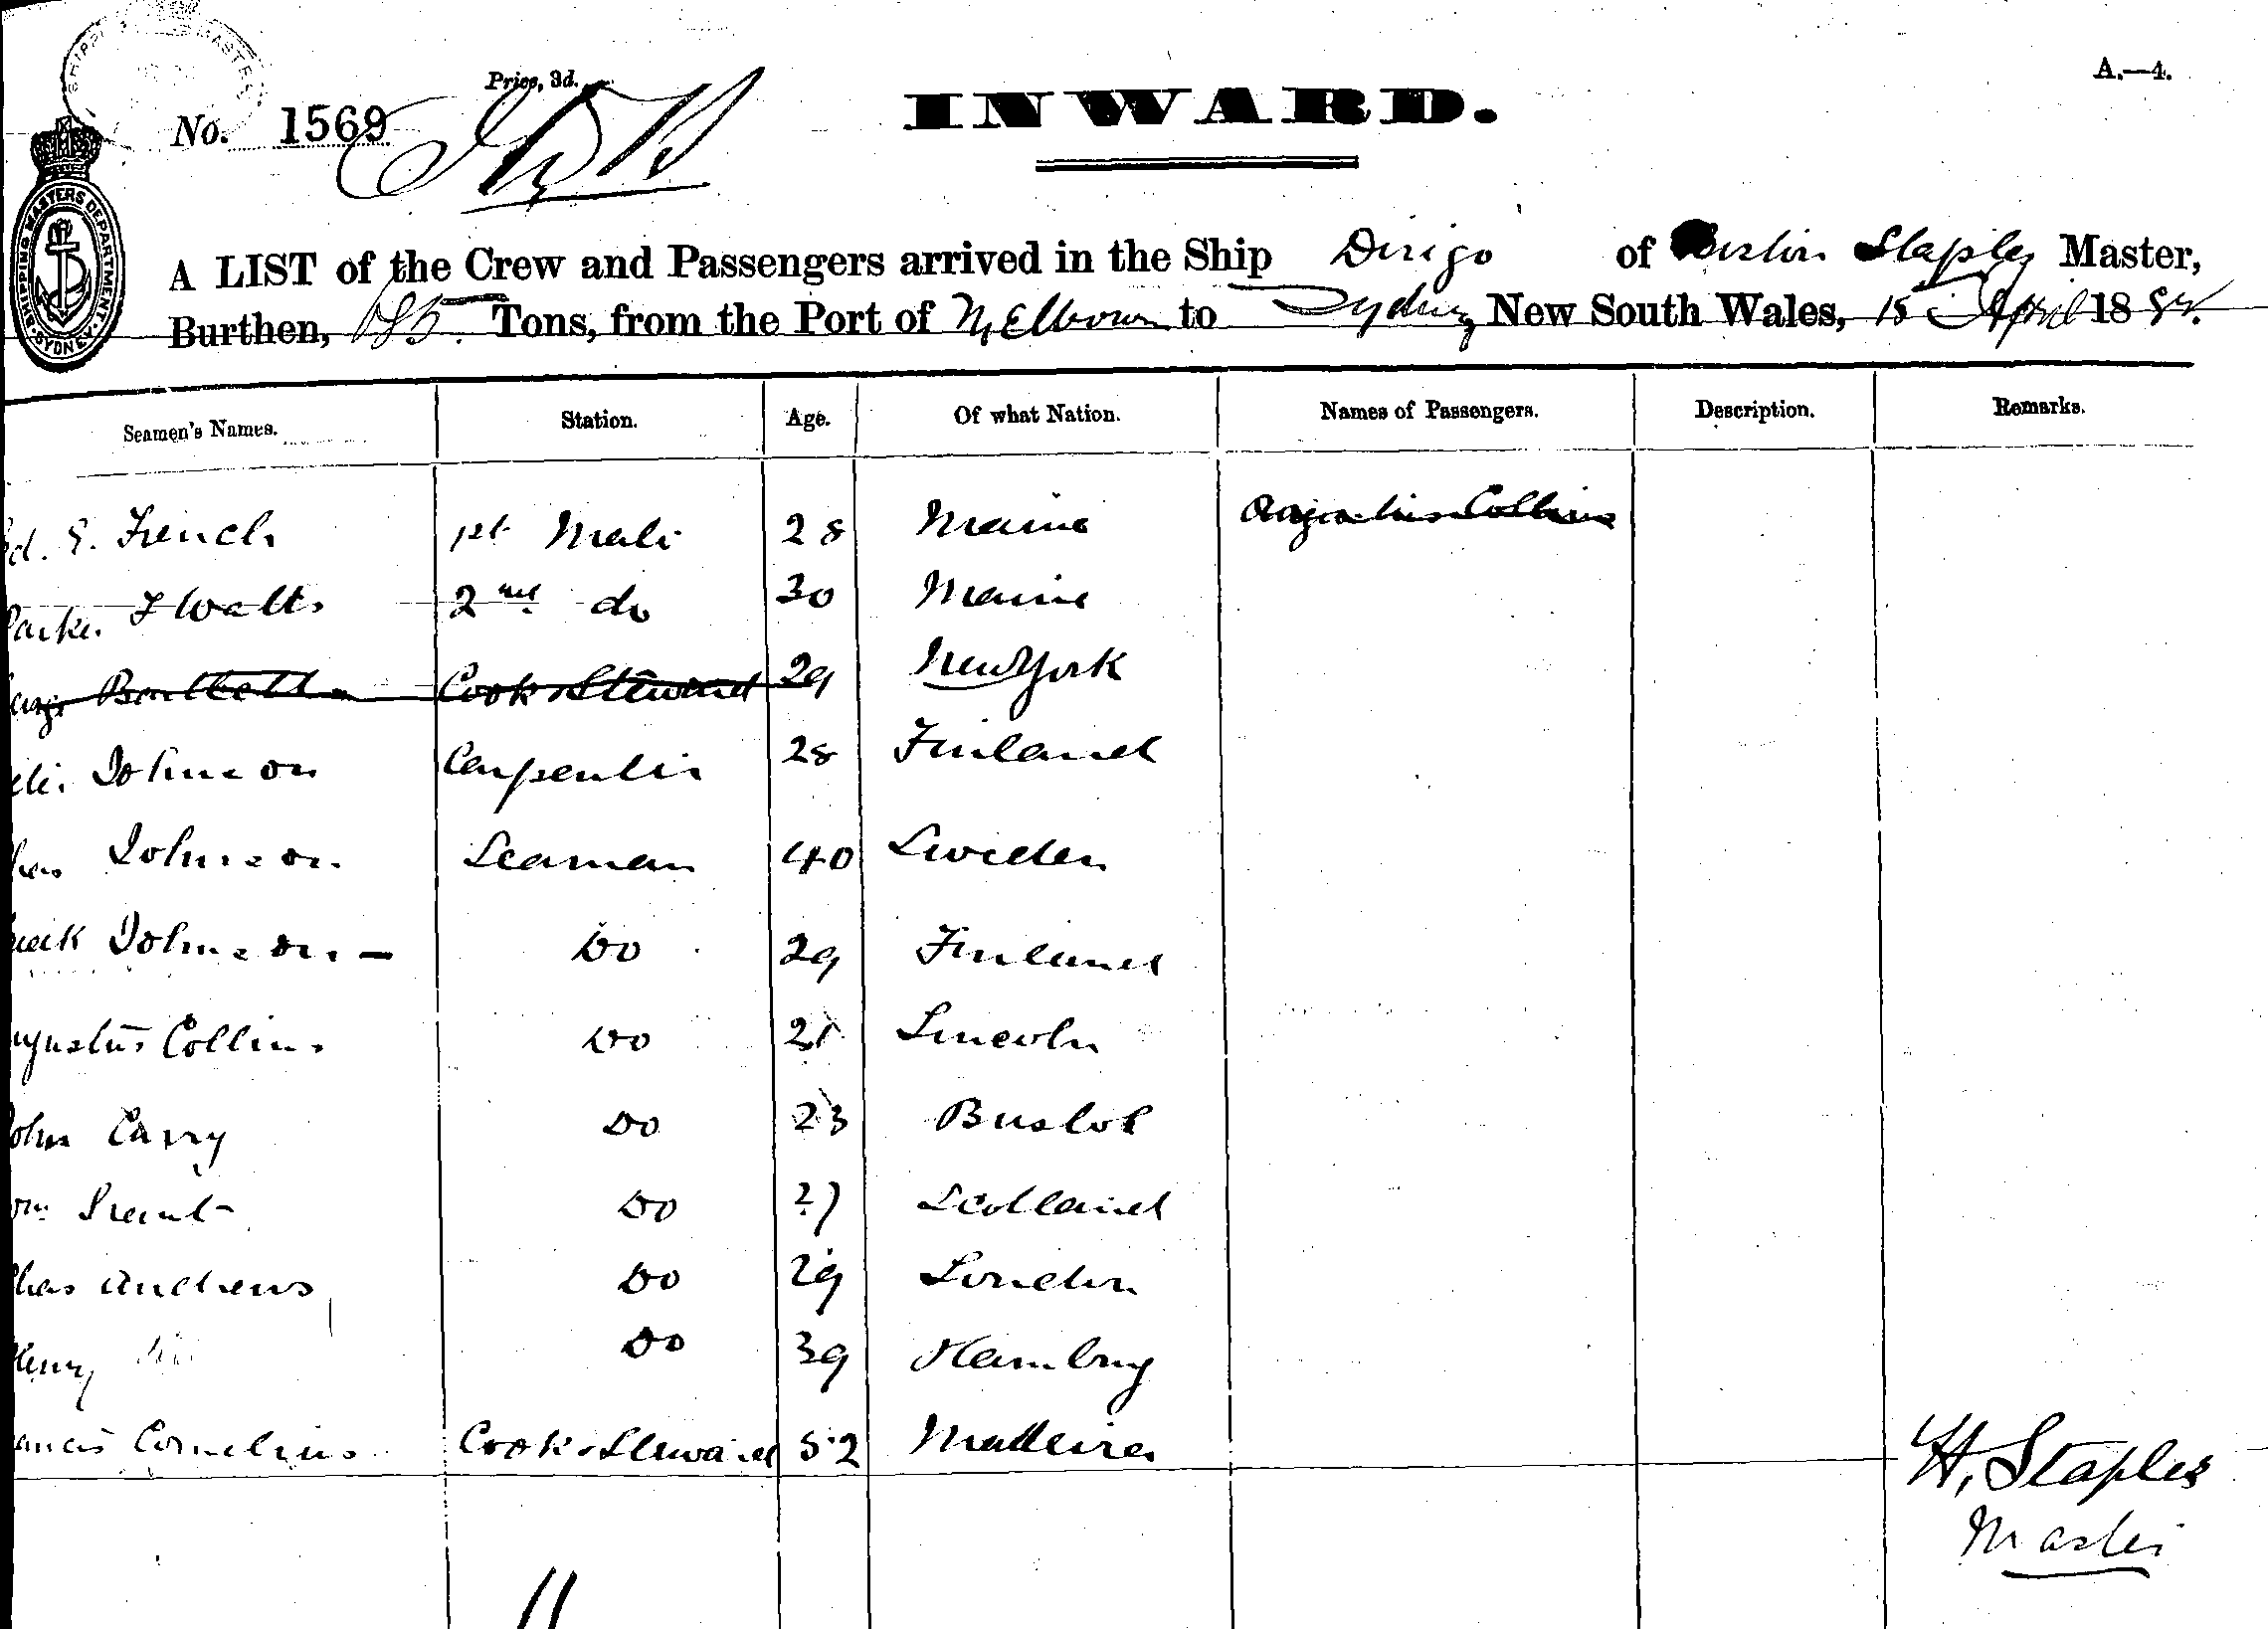 No. 1569
Price, 3d.
INWARD.
A.—4.
SHIPPING MASTERS DEPARTMENT · SYDNEY
A LIST of the Crew and Passengers arrived in the Ship Dirigo of Staples Master,
Burthen, Tons, from the Port of Melbourn to Sydney, New South Wales, 15 April 18
Seamen's Names. Station. Age. Of what Nation. Names of Passengers. Description. Remarks.
d. E. French 1st Mate 28 Maine Augustus Collins
Parker F Watts 2nd do 30 Maine
Bartlett Cook & Steward 29 New York
Johnson Carpenter 28 Finland
has Johnson Seaman 40 Sweden
Johnson — Do 29 Finland
ugustus Collins Do 21 Lincoln
John Carry Do 23 Bristol
Do 27 Scotland
Chas Andrews Do 29 London
Henry Do 39 Hamburg
ancis Cornelius Cook & Steward 52 Madeira
H. Staples
Master
11